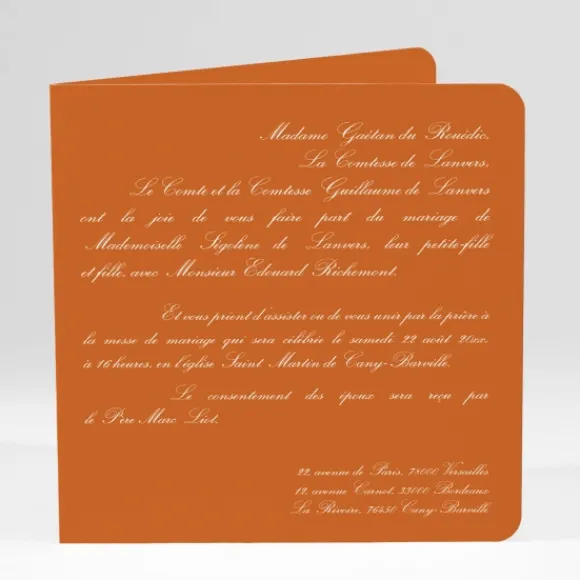 Madame Gaëtan du Rouëdic,
La Comtesse de Lanvers,
Le Comte et la Comtesse Guillaume de Lanvers
ont la joie de vous faire part du mariage de
Mademoiselle Sigolène de Lanvers, leur petite-fille
et fille, avec Monsieur Edouard Richemont.
Et vous prient d'assister ou de vous unir par la prière à
la messe de mariage qui sera célébrée le samedi 22 août 20xx,
à 16 heures, en l'église Saint Martin de Cany-Barville.
Le consentement des époux sera reçu par
le Père Marc Liot.
22, avenue de Paris, 78000 Versailles
12, avenue Carnot, 33000 Bordeaux
La Rivoire, 76450 Cany-Barville